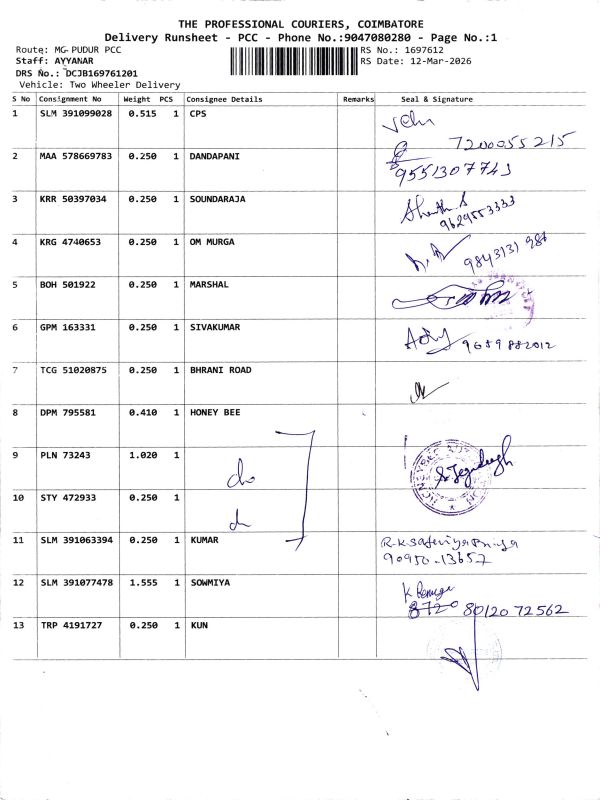 THE PROFESSIONAL COURIERS, COIMBATORE
Delivery Runsheet - PCC - Phone No.:9047080280 - Page No.:1
Route: MG-PUDUR PCC RS No.: 1697612
Staff: AYYANAR RS Date: 12-Mar-2026
DRS No.: DCJB169761201
Vehicle: Two Wheeler Delivery
S No Consignment No Weight PCS Consignee Details Remarks Seal & Signature
1 SLM 391099028 0.515 1 CPS
7200055215
2 MAA 578669783 0.250 1 DANDAPANI
9551307743
3 KRR 50397034 0.250 1 SOUNDARAJA
9629553333
4 KRG 4740653 0.250 1 OM MURGA
5 BOH 501922 0.250 1 MARSHAL
6 GPM 163331 0.250 1 SIVAKUMAR
9659882012
7 TCG 51020875 0.250 1 BHRANI ROAD
8 DPM 795581 0.410 1 HONEY BEE
9 PLN 73243 1.020 1
10 STY 472933 0.250 1
11 SLM 391063394 0.250 1 KUMAR
90950-13657
12 SLM 391077478 1.555 1 SOWMIYA
8720 8012072562
13 TRP 4191727 0.250 1 KUN